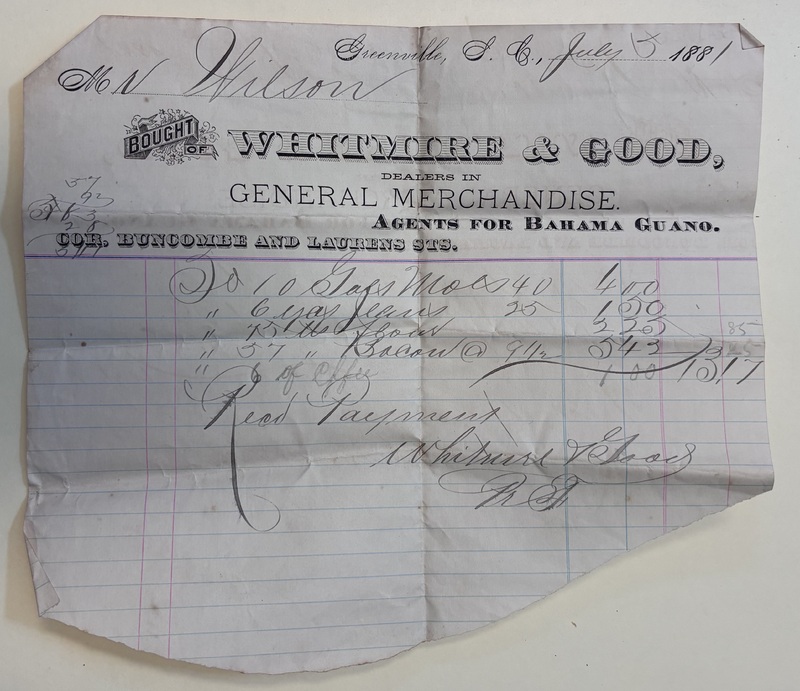 Greenville, S. C., July 5 1881
Mr Wilson
BOUGHT OF WHITMIRE & GOOD,
DEALERS IN
GENERAL MERCHANDISE.
AGENTS FOR BAHAMA GUANO.
COR. BUNCOMBE AND LAURENS STS.
To 10 Gals Molas 40 4 00
" 6 yds Jeans 25 1 50
" 75 lbs Flour 2 25
" 57 " Bacon @ 9 1/2 5 43
" 6 of Coffee 1 00
Recd Payment
Whitmire & Good